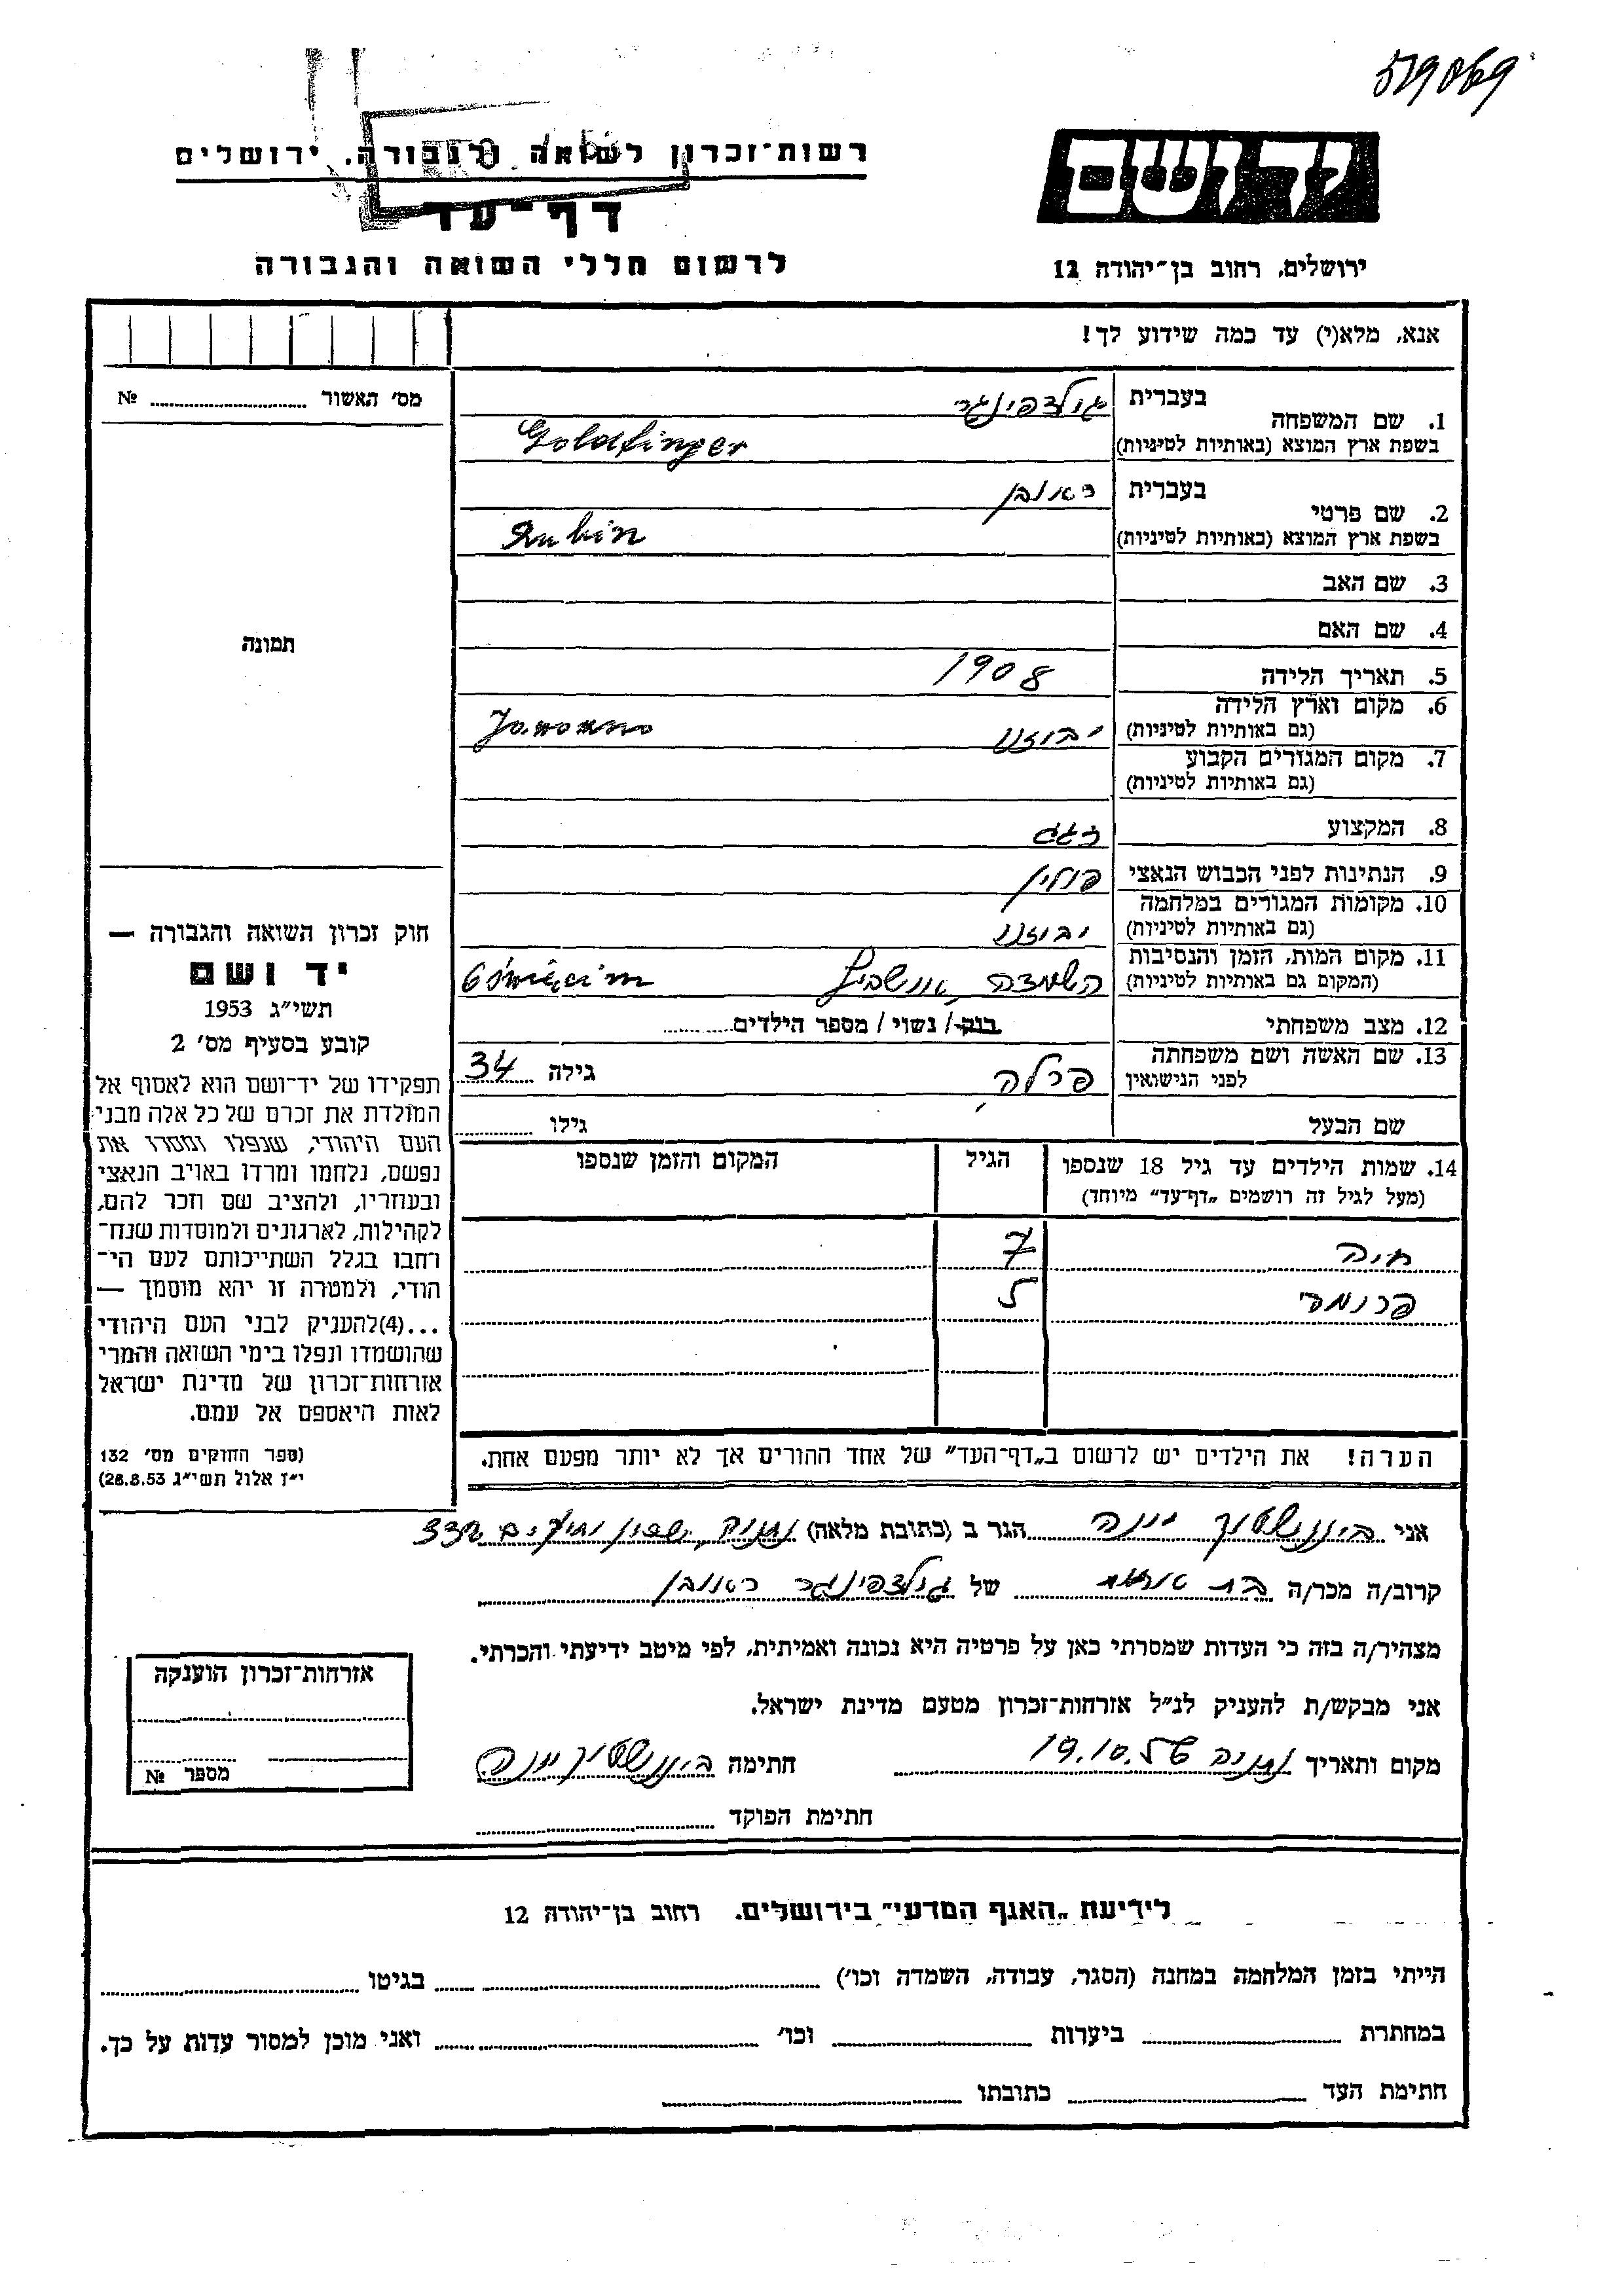 519069
יד ושם
רשות־זכרון לשואה ולגבורה, ירושלים
דף־עד
ירושלים, רחוב בן־יהודה 12
לרשום חללי השואה והגבורה
אנא, מלא(י) עד כמה שידוע לך!
מס' האשור № 
תמונה
חוק זכרון השואה והגבורה —
יד ושם
תשי״ג 1953
קובע בסעיף מס' 2
תפקידו של יד־ושם הוא לאסוף אל
המולדת את זכרם של כל אלה מבני
העם היהודי, שנפלו ומסרו את
נפשם, נלחמו ומרדו באויב הנאצי
ובעוזריו, ולהציב שם וזכר להם,
לקהילות, לארגונים ולמוסדות שנח־
רחבו בגלל השתייכותם לעם הי־
הודי, ולמטרה זו יהא מוסמך —
...(4) להעניק לבני העם היהודי
שהושמדו ונפלו בימי השואה והמרי
אזרחות־זכרון של מדינת ישראל
לאות היאספם אל עמם.
(ספר החוקים מס' 132
י״ז אלול תשי״ג 28.8.53)
1. שם המשפחה בעברית גולדפינגר
בשפת ארץ המוצא (באותיות לטיניות) Goldfinger
2. שם פרטי בעברית ראובן
בשפת ארץ המוצא (באותיות לטיניות) Rubin
3. שם האב
4. שם האם
5. תאריך הלידה 1908
6. מקום וארץ הלידה
(גם באותיות לטיניות) יבוזנו Jaworzno
7. מקום המגורים הקבוע
(גם באותיות לטיניות)
8. המקצוע
9. הנתינות לפני הכבוש הנאצי פולין
10. מקומות המגורים במלחמה
(גם באותיות לטיניות) יבוזנו
11. מקום המות, הזמן והנסיבות
(המקום גם באותיות לטיניות) השמדה, אושביץ Oświęcim
12. מצב משפחתי רווק / נשוי / מספר הילדים
13. שם האשה ושם משפחתה
לפני הנישואין פרלה גילה 34
שם הבעל גילו
14. שמות הילדים עד גיל 18 שנספו הגיל המקום והזמן שנספו
(מעל לגיל זה רושמים „דף־עד״ מיוחד)
חיה 7
5
הערה! את הילדים יש לרשום ב„דף־העד״ של אחד ההורים אך לא יותר מפעם אחת.
אני יונה הגר ב (כתובת מלאה) נתניה, 332
קרוב/ה מכר/ה של גולדפינגר ראובן
מצהיר/ה בזה כי העדות שמסרתי כאן על פרטיה היא נכונה ואמיתית, לפי מיטב ידיעתי והכרתי.
אני מבקש/ת להעניק לנ״ל אזרחות־זכרון מטעם מדינת ישראל.
מקום ותאריך נתניה 19.10.56 חתימה יונה
חתימת הפוקד
אזרחות־זכרון הוענקה
מספר №
לידיעת „האגף המדעי״ בירושלים, רחוב בן־יהודה 12
הייתי בזמן המלחמה במחנה (הסגר, עבודה, השמדה וכו') בגיטו
במחתרת ביערות וכו' ואני מוכן למסור עדות על כך.
חתימת העד כתובתו